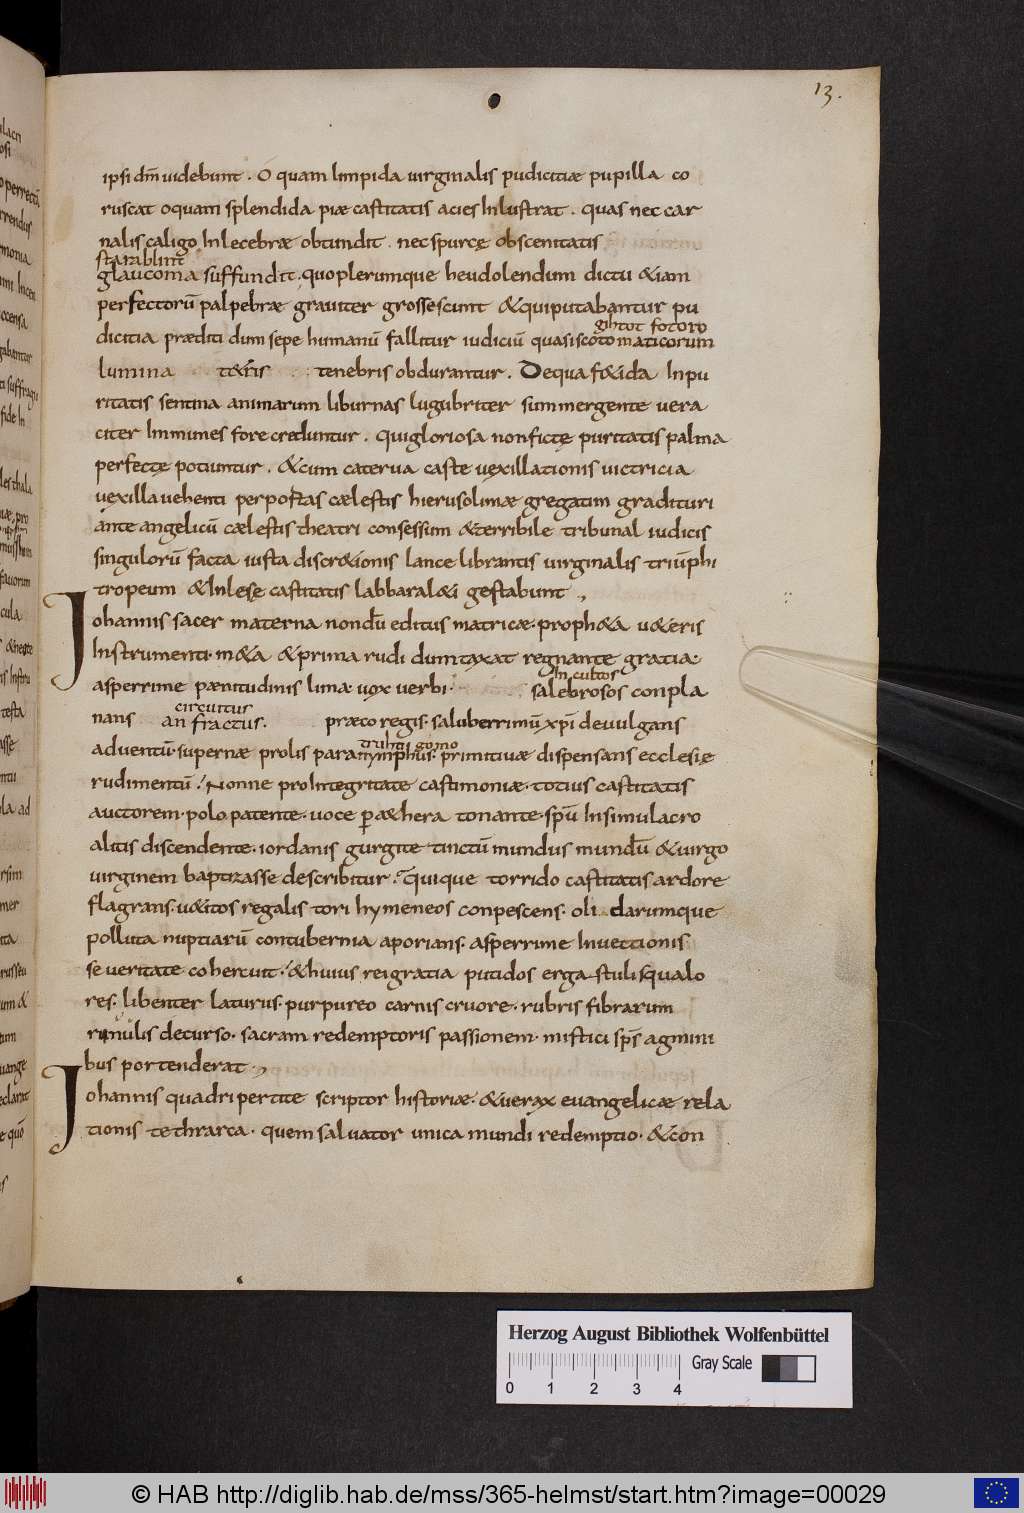 13.
ipsi dm̄ uidebunt . O quam limpida uirginalis pudicitiæ pupilla co
ruscat oquam splendida piæ castitatis acies Inlustrat . quas nec car
nalis caligo Inlecebræ obtundit . nec spurcę obscenitatis
starablint
glaucoma suffundit . quo plerumque heu dolendum dictu &iam
perfectorū palpebræ grauiter grossescunt &qui putabantur pu
dicitia præditi dum sepe humanū fallitur iudiciū quasi scotomaticorum
lumina t&ris tenebris obdurantur . De qua f&ida Inpu
ritatis sentina animarum liburnas lugubriter summergente uera
citer Immunes fore creduntur . qui gloriosa non fictę puritatis palma
perfectę potiuntur . &cum caterua caste uęxillationis uictricia
uęxilla uehenti per postas cælestis hierusolimæ gregatim gradituri
ante angelicū cælestis theatri consessum &terribile tribunal iudicis
singulorū facta iusta discr&ionis lance librantis uirginalis triūphi
tropeum &Inlesę castitatis labbaral&i gestabunt
Iohannis sacer materna nondū editus matricæ · proph&a u&eris
Instrumenti · m&a &prima rudi dumtaxat regnante gratia ·
In cultos
asperrime pænitudinis lima uox uerbi · salebrosos conpla
circuitus
nans an fractus . præco regis · saluberrimū xp̄i deuulgans
truhti gomo
aduentū · supernæ prolis paranymphus · primitiuæ dispensans ecclesię
rudimentū · Nonne pro Integritate castimoniæ · totius castitatis
auctorem · polo patente · uoce p a&hera tonante · spū In simulacro
alitis discendente · iordanis gurgite tinctū mundus mundū &uirgo
uirginem baptizasse describitur · Quique torrido castitatis ardore
flagrans · u&itos regalis tori hymeneos conpescens · oli darumque
polluta nuptiarū contubernia aporians · asperrime Inuectionis
seueritate cohercuit · &huius rei gratia putidos ergastuli squalo
res · libenter laturus purpureo carnis cruore · rubris fibrarum
riuulis decurso · sacram redemptoris passionem · mistici sp̄s agmini
bus portenderat ·
Iohannis quadripertite scriptor historiæ · &uerax euangelicæ rela
tionis tethrarca · quem saluator unica mundi redemptio · &con
Herzog August Bibliothek Wolfenbüttel
Gray Scale
0 1 2 3 4
© HAB http://diglib.hab.de/mss/365-helmst/start.htm?image=00029